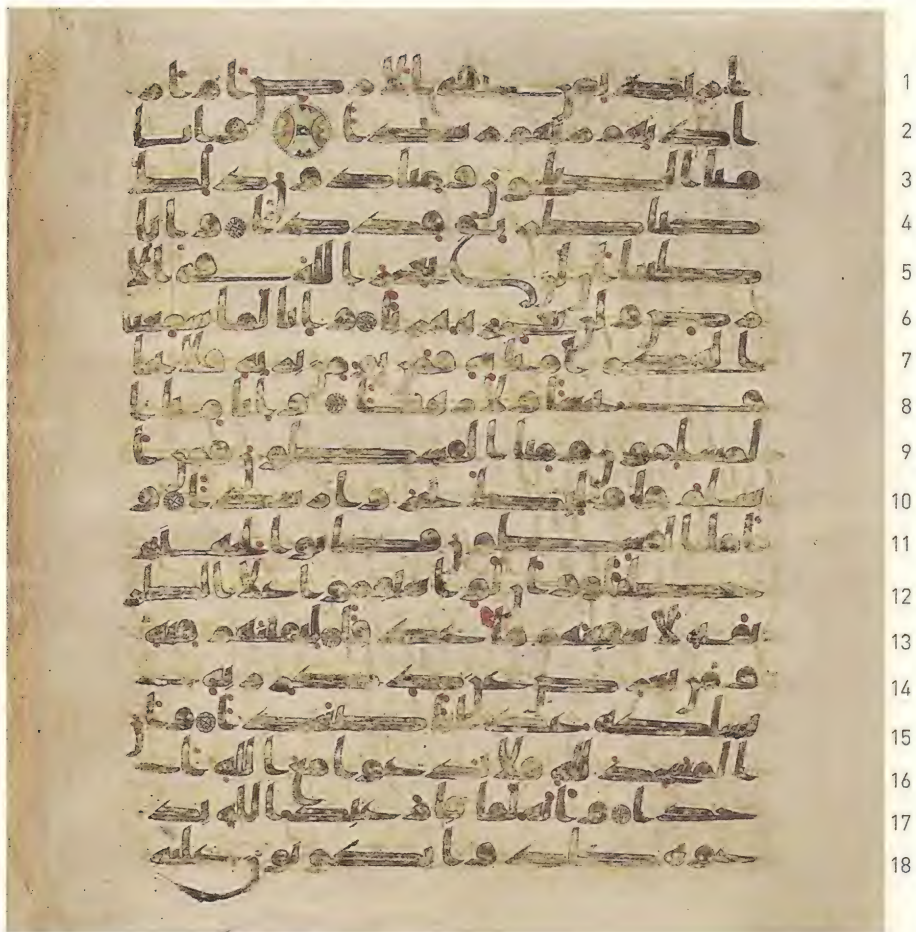 اريد بمن في الارض ام ا 1
راد بهم ربهم رشدا وانا 2
منا الصلحون ومنا دون ذلك 3
كنا طرائق قددا وانا 4
ظننا ان لن نعجز الله في الا 5
رض ولن نعجزه هربا وانا لما سمعنا 6
الهدى امنا به فمن يومن بربه فلا يخا 7
ف بخسا ولا رهقا وانا منا ا 8
لمسلمون ومنا القسطون فمن ا 9
سلم فاولئك تحروا رشدا و 10
اما القسطون فكانوا لجهنم 11
حطبا وان لو استقموا على الطر 12
يقه لاسقينهم ما غدقا لنفتنهم فيه 13
ومن يعرض عن ذكر ربه 14
يسلكه عذابا صعدا وان 15
المسجد لله فلا تدعوا مع الله ا 16
حدا وانه لما قام عبد الله يد 17
عوه كادوا يكونون عليه 18